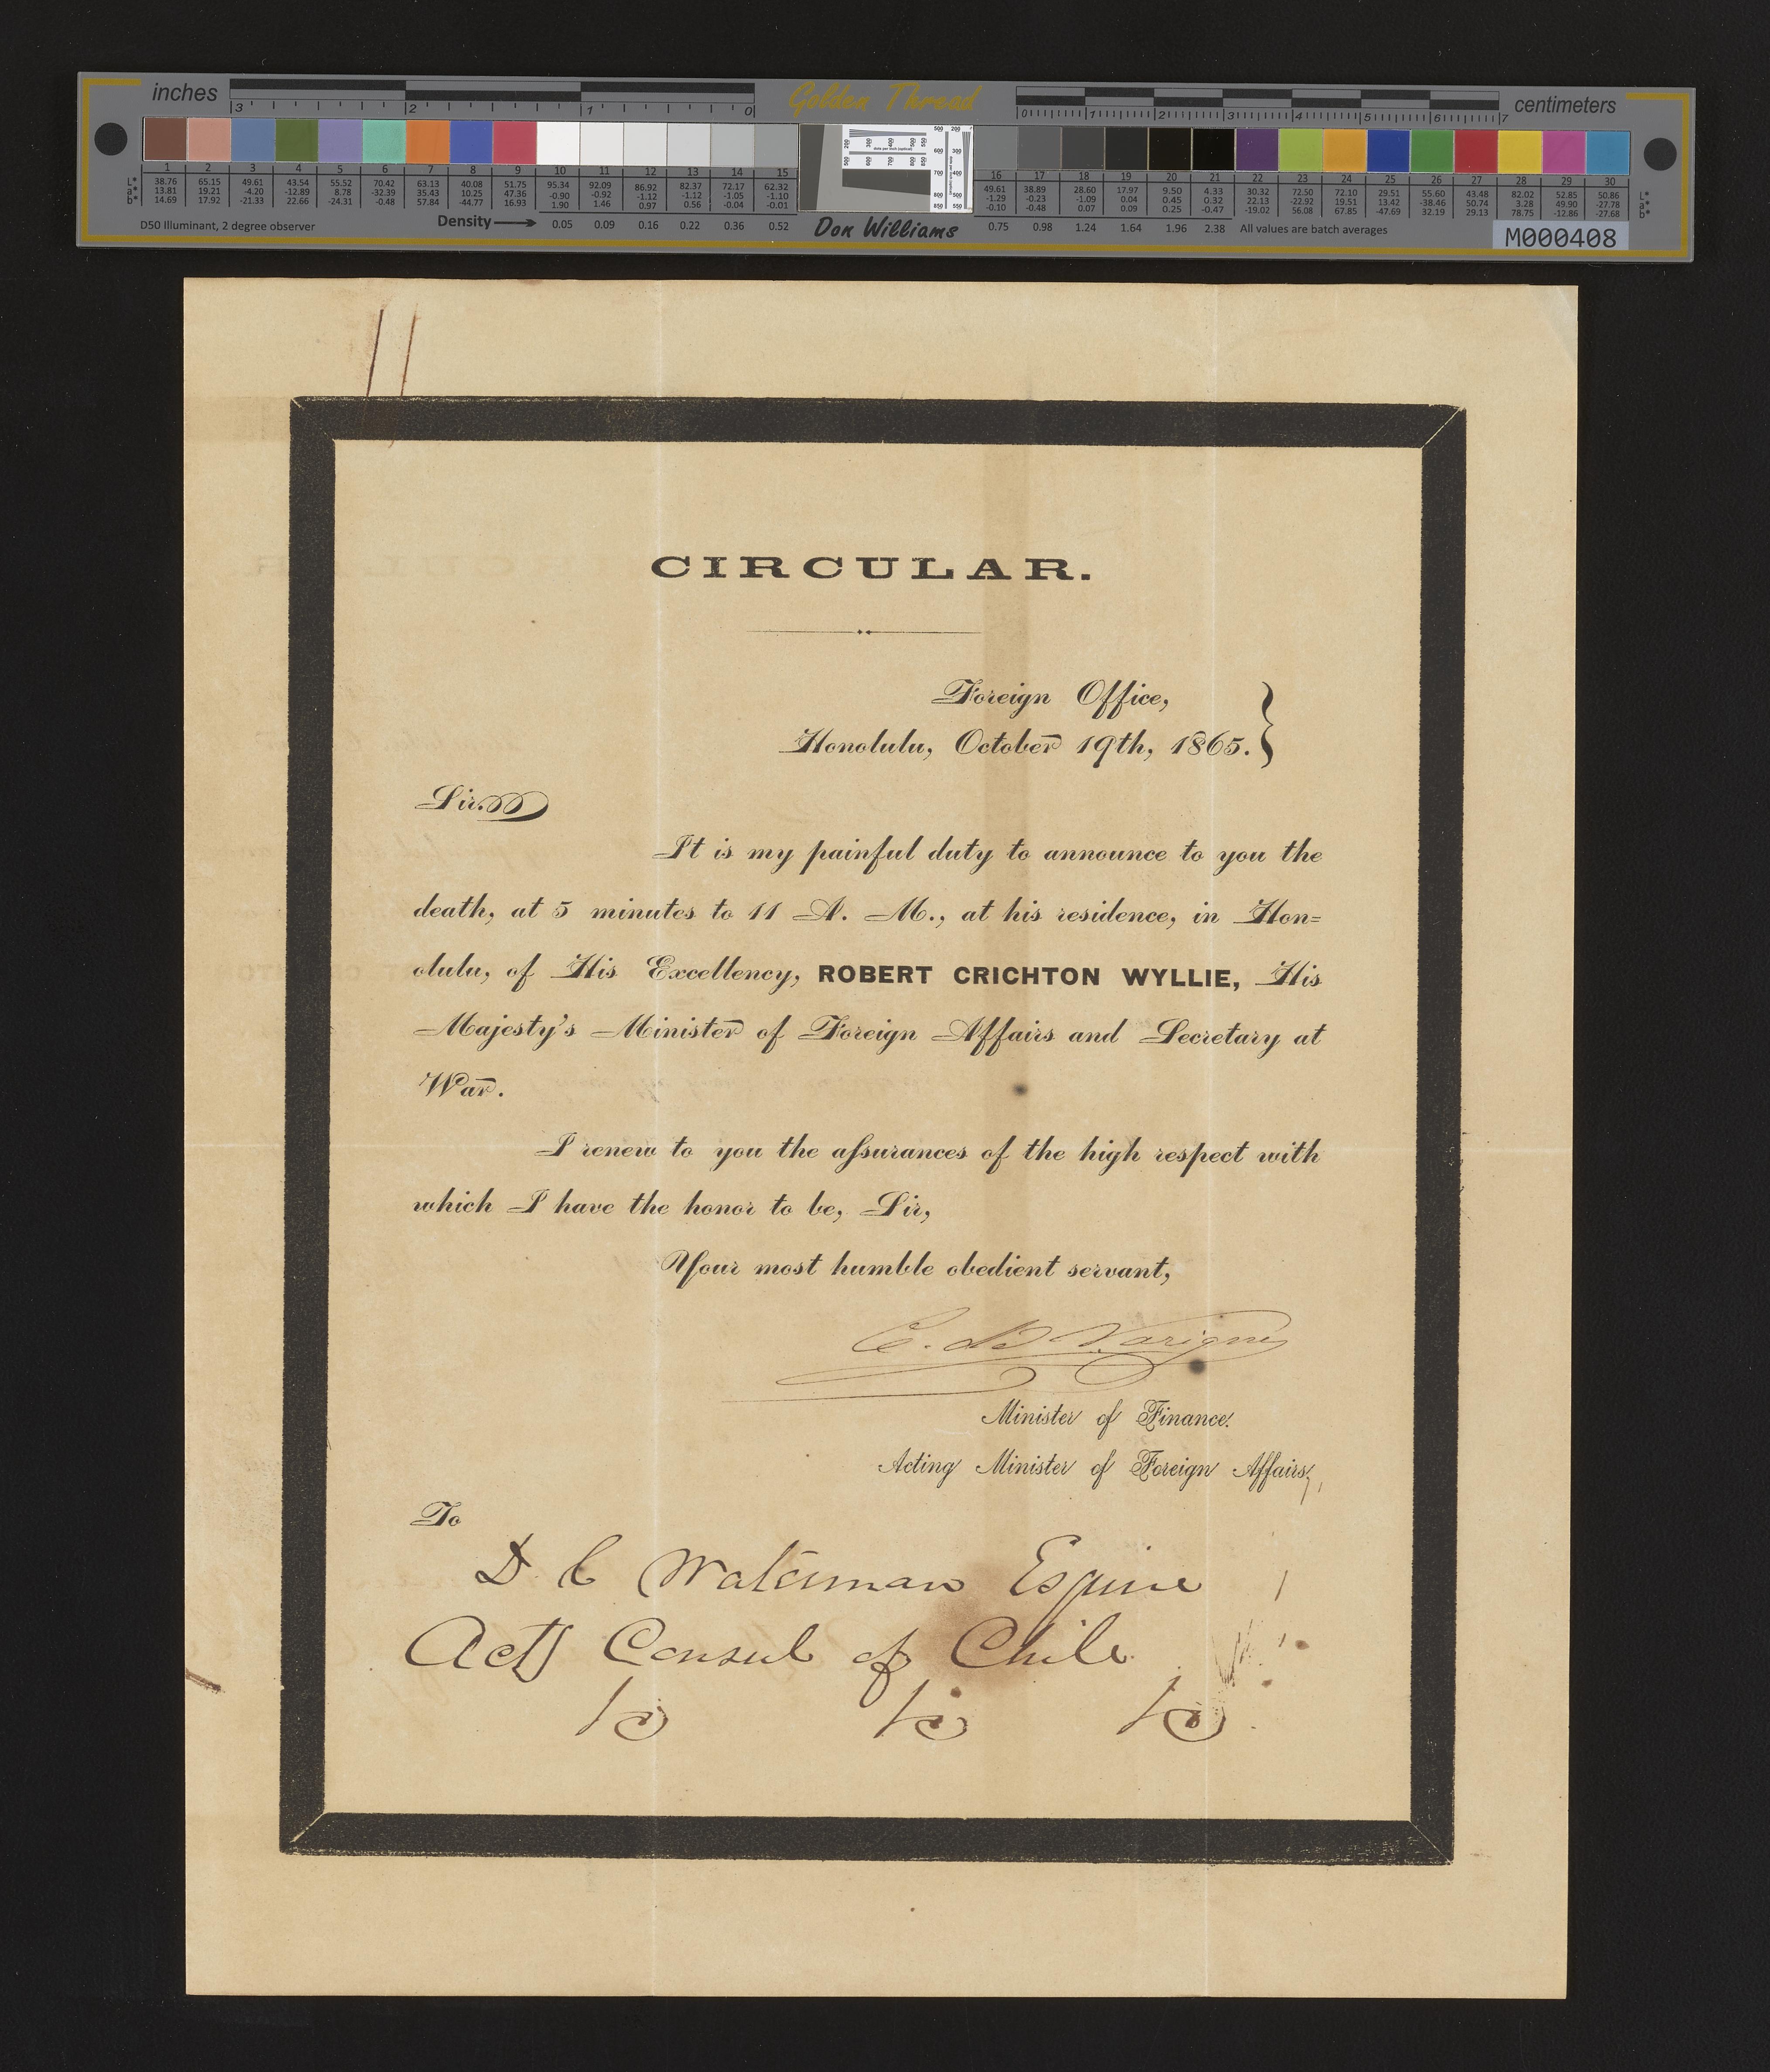 inches
3 2 1 0
Golden Thread
0 1 2 3 4 5 6 7
centimeters
1 2 3 4 5 6 7 8 9 10 11 12 13 14 15 16 17 18 19 20 21 22 23 24 25 26 27 28 29 30
L* 38.76 65.15 49.61 43.54 55.52 70.42 63.13 40.08 51.75 95.34 92.09 86.92 82.37 72.17 62.32 49.61 38.89 28.60 17.97 9.50 4.33 30.32 72.50 72.10 29.51 55.60 43.48 82.02 52.85 50.86 L*
a* 13.81 19.21 -4.20 -12.89 8.78 -32.39 35.43 10.25 47.36 -0.90 -0.92 -1.12 -1.12 -1.05 -1.10 -1.29 -0.23 -1.09 0.04 0.45 0.32 22.13 -22.92 19.51 13.42 -38.46 50.74 3.28 49.90 -27.78 a*
b* 14.69 17.92 -21.33 22.66 -24.31 -0.48 57.84 -44.77 16.93 1.90 1.46 0.97 0.56 -0.04 -0.01 -0.10 -0.48 0.07 0.09 0.25 -0.47 -19.02 56.08 67.85 -47.69 32.19 29.13 78.75 -12.86 -27.68 b*
D50 Illuminant, 2 degree observer
Density 0.05 0.09 0.16 0.22 0.36 0.52
Don Williams
0.75 0.98 1.24 1.64 1.96 2.38 All values are batch averages
M000408
CIRCULAR.
Foreign Office,
Honolulu, October 19th, 1865.
Sir.
It is my painful duty to announce to you the
death, at 5 minutes to 11 A. M., at his residence, in Hon=
olulu, of His Excellency, ROBERT CRICHTON WYLLIE, His
Majesty's Minister of Foreign Affairs and Secretary at
War.
I renew to you the aſsurances of the high respect with
which I have the honor to be, Sir,
Your most humble obedient servant,
C. de Varigny
Minister of Finance.
Acting Minister of Foreign Affairs,
To
D. C Waterman Esquire
Actg Consul of Chile